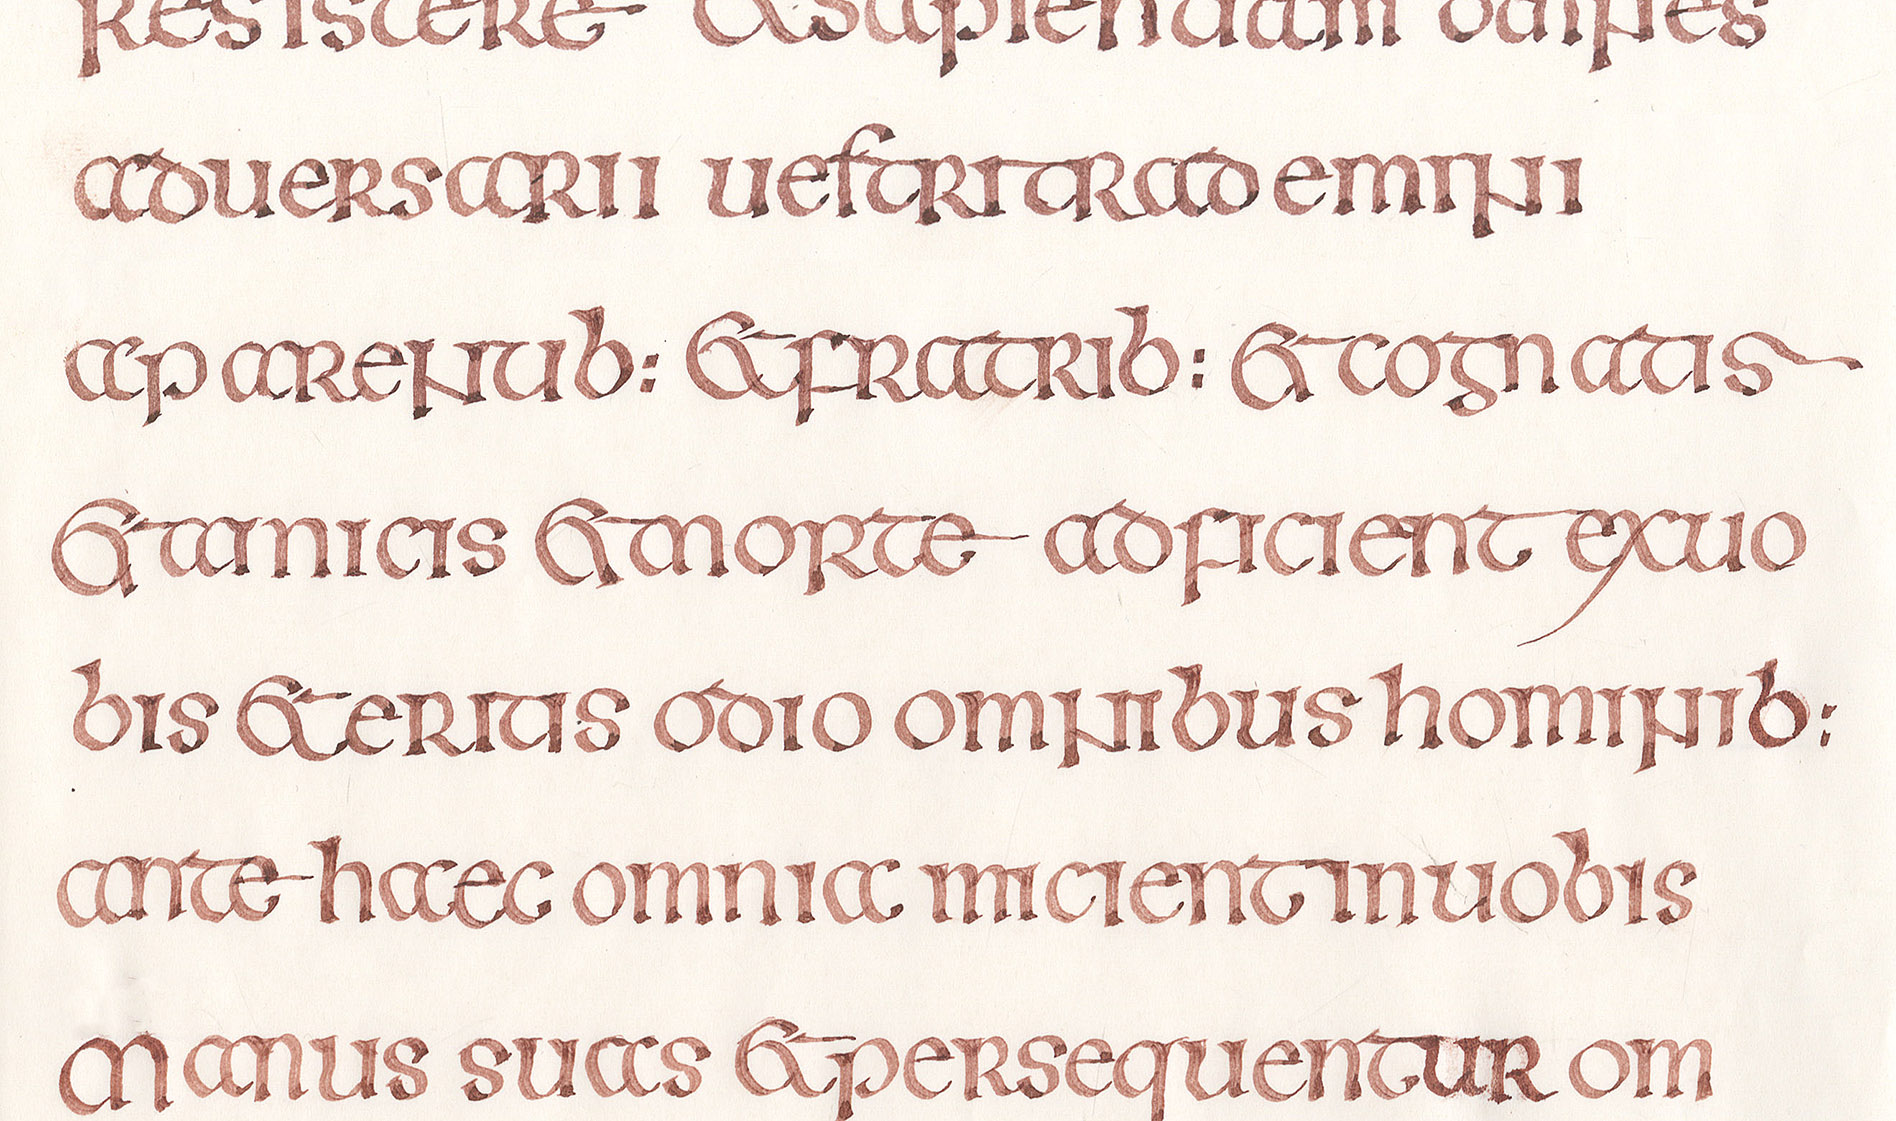 resistere &sapientiam omnes
aduersarii uestri trademini
aparentib: &fratrib: &cognatis
&amicis &morte adficient exuo
bis &eritis odio omnibus hominib:
ante haec omnia micient in uobis
manus suas &persequentur om